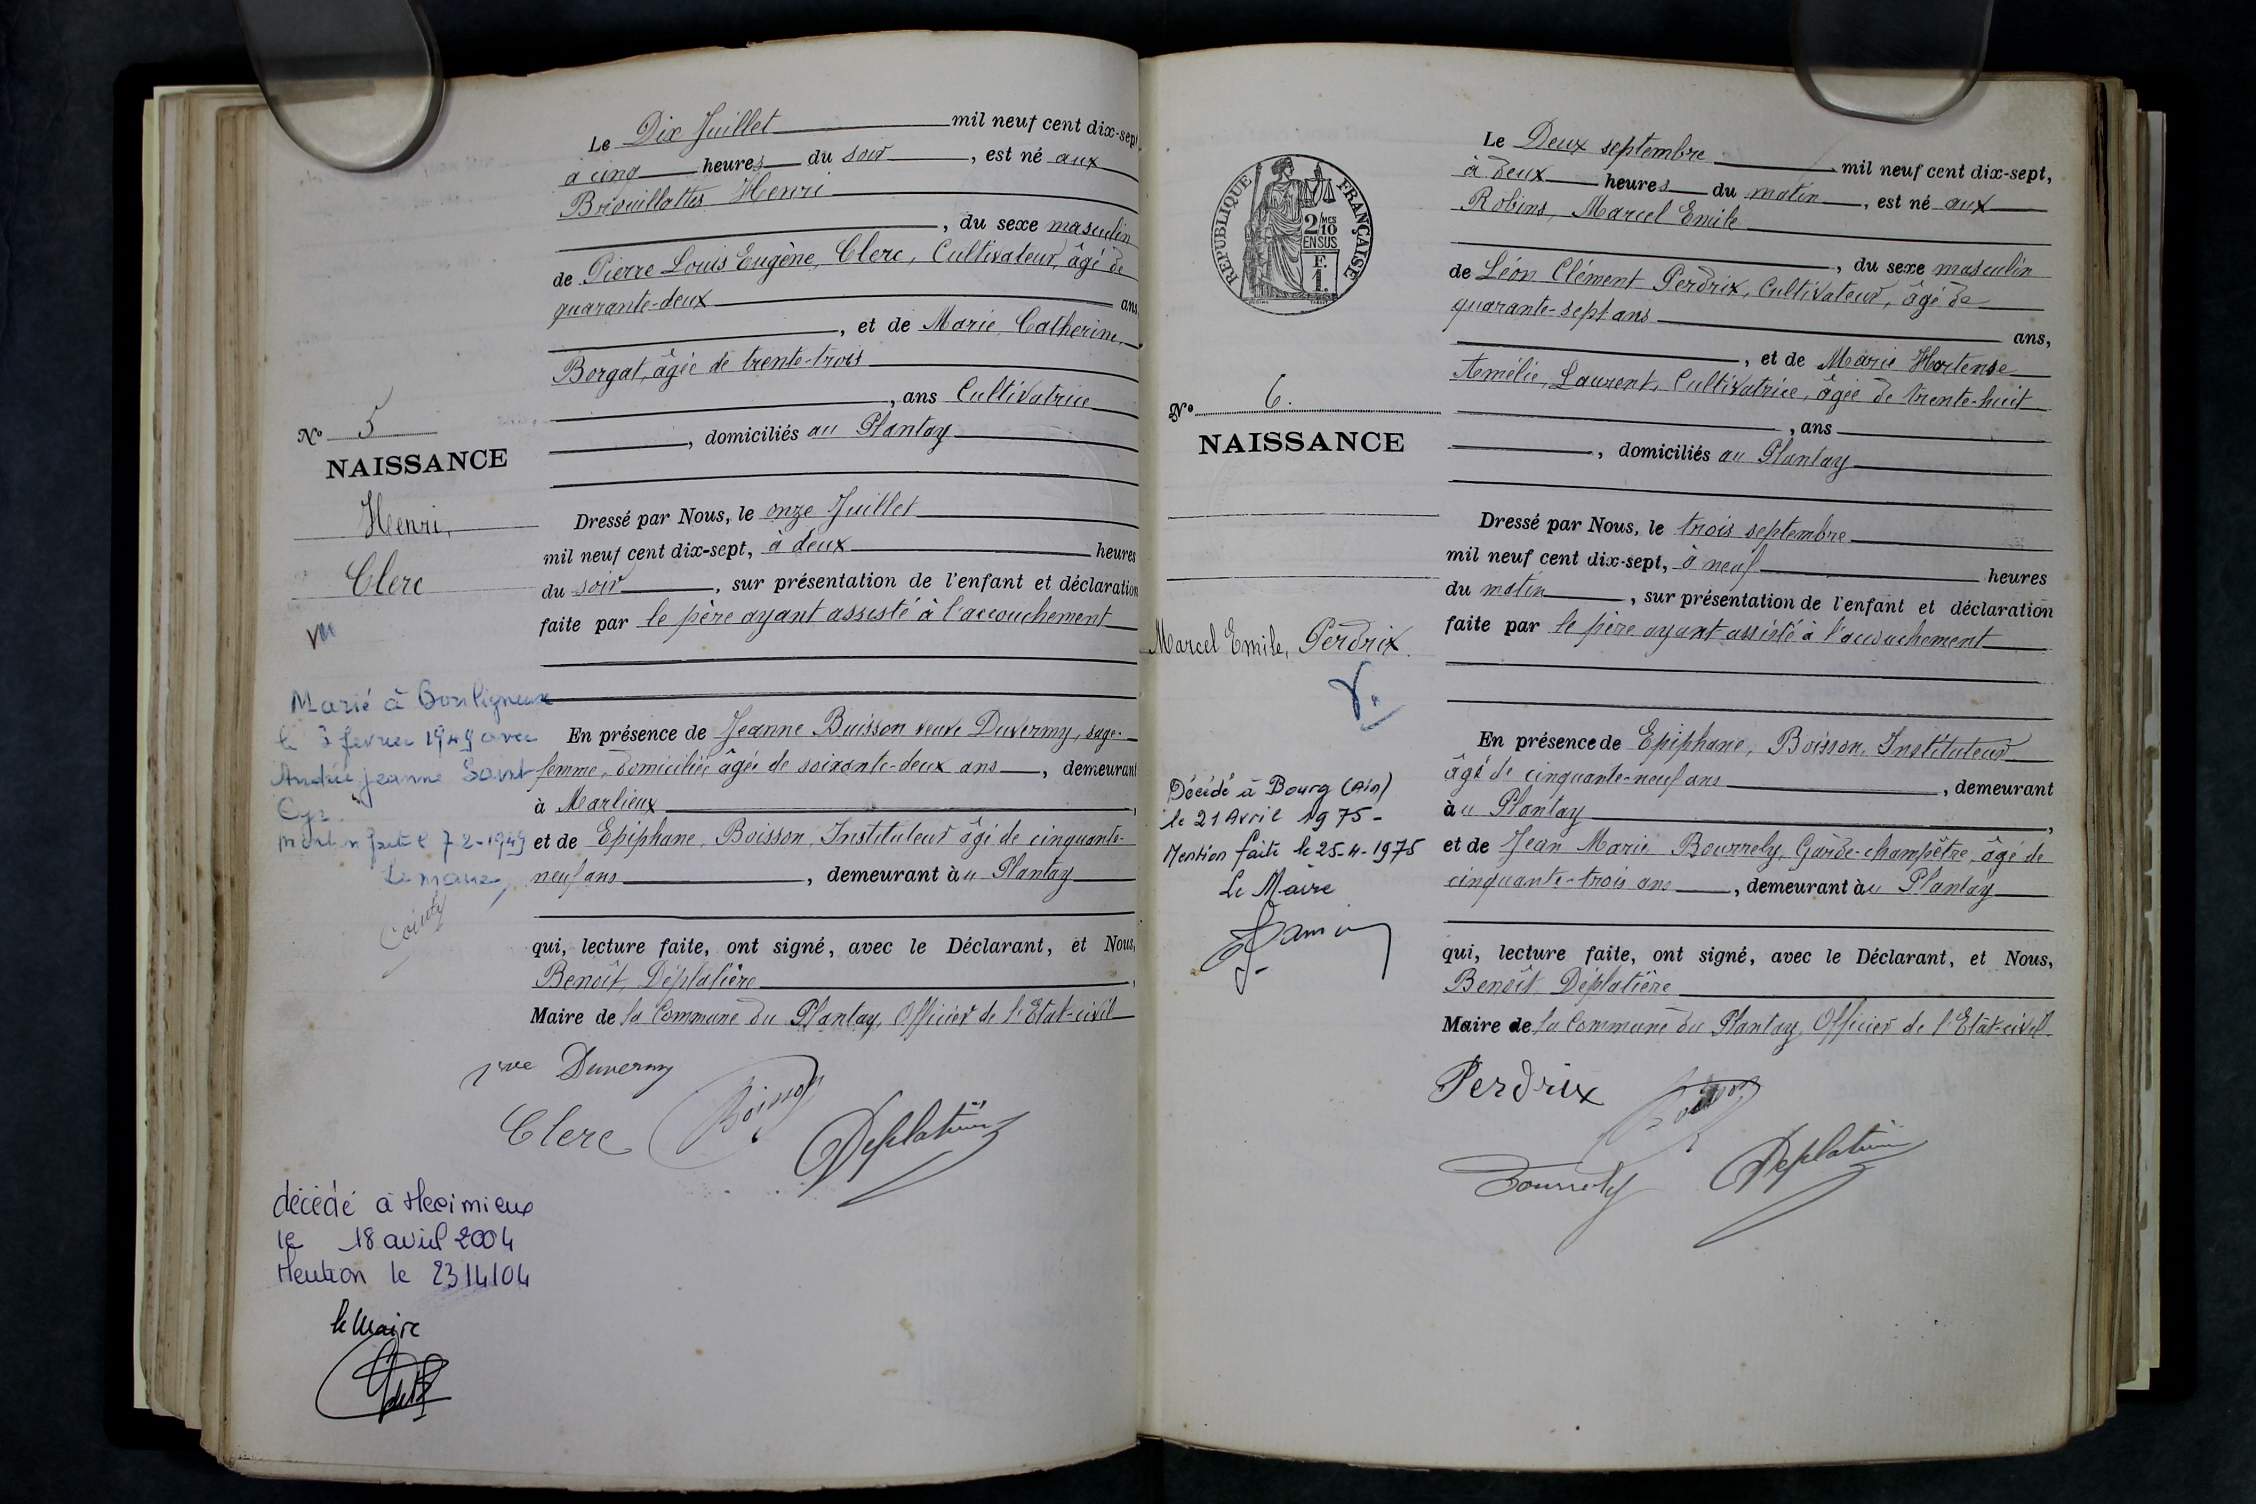 Le Dix Juillet mil neuf cent dix-sept
à cinq heures du soir, est né aux
Brouillattes Henri
, du sexe masculin
de Pierre Louis Eugène, Clerc, Cultivateur, âgé de
quarante-deux ans
, et de Marie Catherine,
Borgat, âgée de trente-trois
, ans Cultivatrice
, domiciliés au Plantay
No 5
NAISSANCE
Henri,
Clerc
Dressé par Nous, le onze Juillet
mil neuf cent dix-sept, à deux heures
du soir, sur présentation de l'enfant et déclaration
faite par le père ayant assisté à l'accouchement
En présence de Jeanne Buisson veuve Duverny, sage-
femme, domiciliée âgée de soixante-deux ans, demeurant
à Marlieux,
et de Epiphane, Boisson, Instituteur âgé de cinquante-
neuf ans, demeurant à u Plantay
qui, lecture faite, ont signé, avec le Déclarant, et Nous,
Benoît, Déplatière,
Maire de la Commune du Plantay, Officier de l'Etat-civil
Marié à Bouligneux
le 3 février 1949 avec
Andrée Jeanne Saint
Cyr.
Mention faite le 7-2-1949
Le maire,
Cointy
vve Duverny
Clerc Boisson Deplatière
décédé à Meximieux
le 18 avril 2004
Mention le 23/4/04
le Maire
REPUBLIQUE FRANÇAISE
2/10 MES
EN SUS
F.
1.
Le Deux septembre mil neuf cent dix-sept,
à deux heures du matin, est né aux
Robins, Marcel Emile
, du sexe masculin
de Léon Clément Perdrix, Cultivateur, âgé de
quarante-sept ans ans,
, et de Marie Hortense
Amélie, Laurent, Cultivatrice, âgée de trente-huit
, ans
, domiciliés au Plantay
No 6.
NAISSANCE
Marcel Emile, Perdrix.
Dressé par Nous, le trois septembre
mil neuf cent dix-sept, à neuf heures
du matin, sur présentation de l'enfant et déclaration
faite par le père ayant assisté à l'accouchement
En présence de Epiphane, Boisson, Instituteur
âgé de cinquante-neuf ans, demeurant
à u Plantay,
et de Jean Marie Bourrely, Garde-champêtre, âgé de
cinquante-trois ans, demeurant à u Plantay
qui, lecture faite, ont signé, avec le Déclarant, et Nous,
Benoît Déplatière
Maire de la Commune du Plantay, Officier de l'Etat-civil
Décédé à Bourg (Ain)
le 21 Avril 1975 -
Mention faite le 25-4-1975
Le Maire
Perdrix Boisson
Bourrely Deplatière